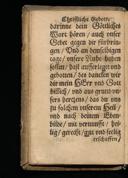 Christliche Gebete,
darinne dein Göttliches
Wort hören / auch unser
Gebet gegen dir fürbrin-
gen / Und an demselbigen
tage / unsere Ruhe haben
sollen / hast aufferleget und
gebotten / des dancken wir
dir mein HErr von Gott
billich / und aus grund un-
sers hertzens / das du uns
zu solchem unserem Heil /
und nach deinem Eben-
bilde / mit vernunfft / hei-
lig / gerecht / gut und freilig
erschaffen /